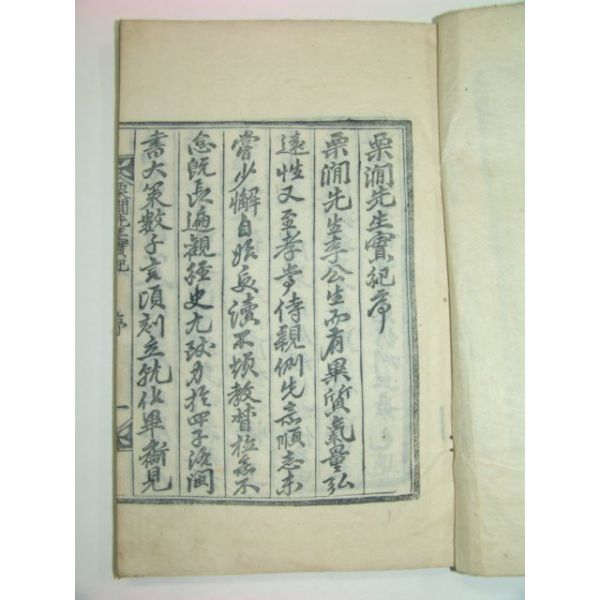 栗澗先生實紀序
栗澗先生李公生而有異質氣量弘
遠性又至孝常侍親側先意順志未
嘗少懈自始受讀不煩教督拉忘不
念既長遍觀經史尤致力於四子洛閩
書大策數千言頃刻立就化畢嶄見
栗澗先生實紀
序
一